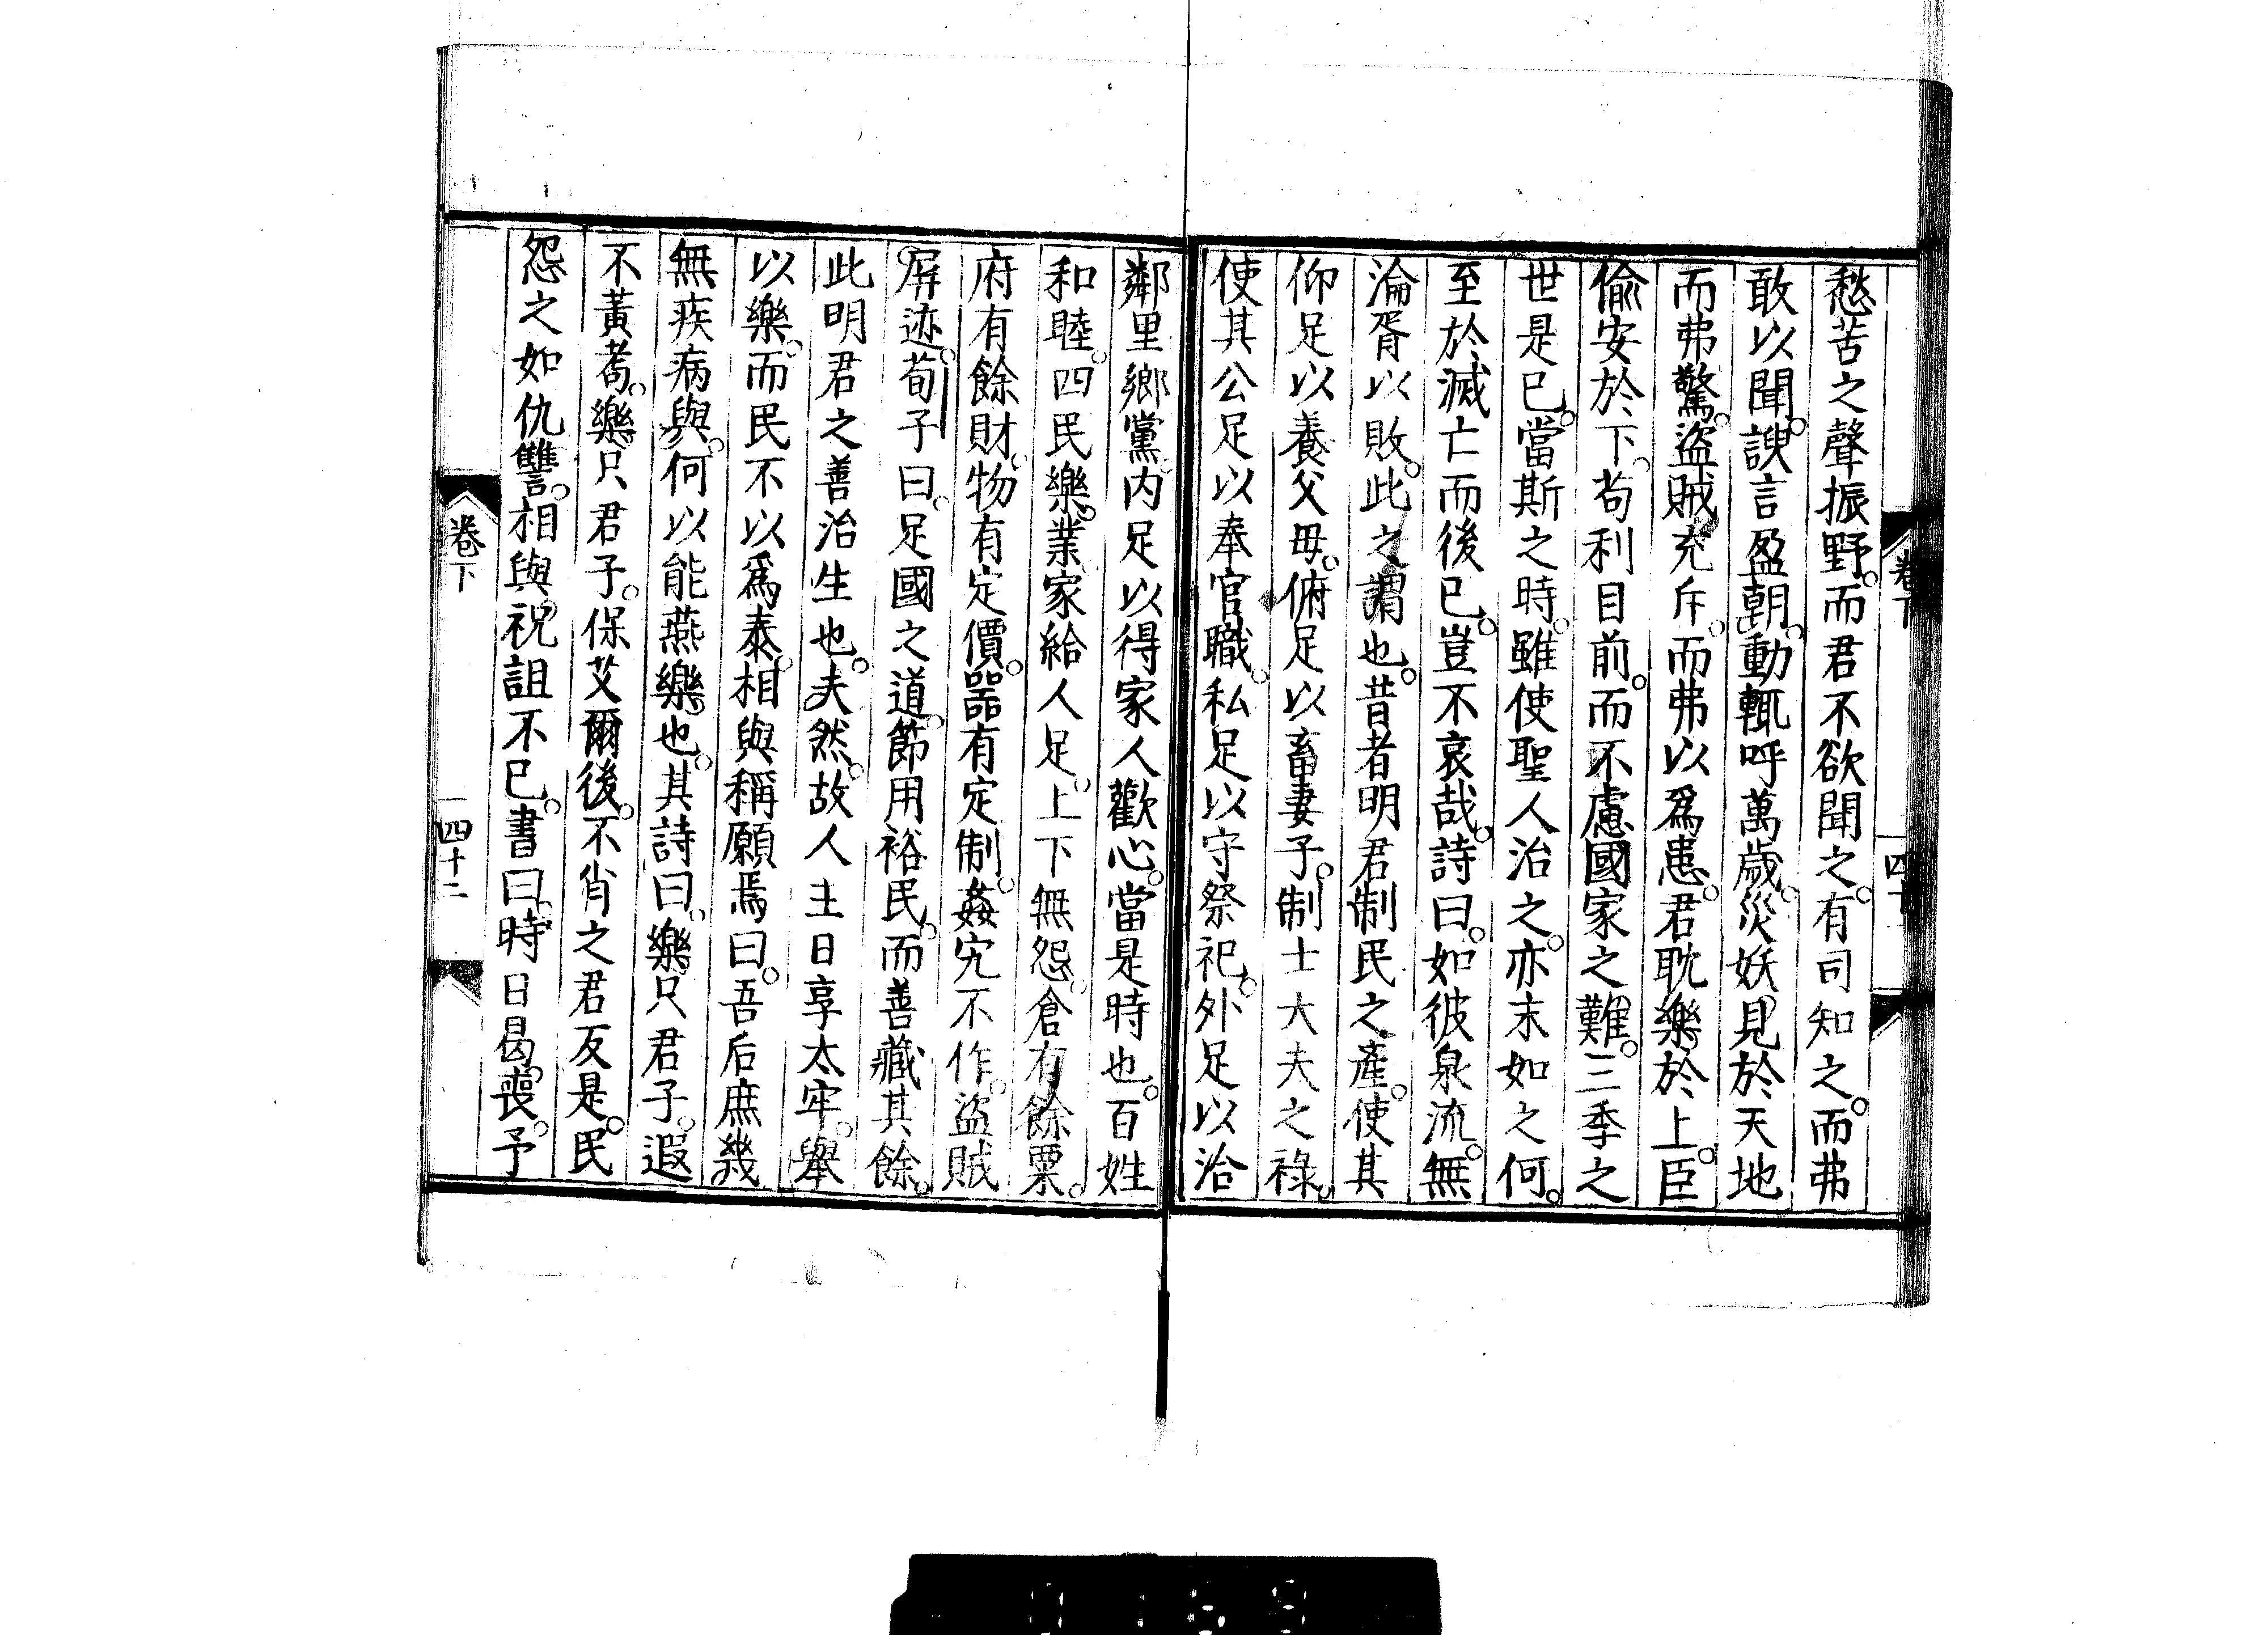 愁苦之聲振野。而君不欲聞之。有司知之。而弗
敢以聞。諛言盈朝。動輒呼萬歲。災妖見於天地
而弗驚。盜賊充斥。而弗以爲患。君耽樂於上。臣
偷安於下。苟利目前。而不慮國家之難。三季之
世是已。當斯之時。雖使聖人治之。亦末如之何。
至於滅亡而後已。豈不哀哉。詩曰。如彼泉流。無
淪胥以敗。此之謂也。昔者明君制民之產。使其
仰足以養父母。俯足以畜妻子。制士大夫之祿。
使其公足以奉官職。私足以守祭祀。外足以洽
鄰里鄉黨。内足以得家人歡心。當是時也。百姓
和睦。四民樂業。家給人足。上下無怨。倉有餘粟。
府有餘財。物有定價。器有定制。姦宄不作。盜賊
屏迹。荀子曰。足國之道。節用裕民。而善藏其餘。
此明君之善治生也。夫然。故人主日享太牢。舉
以樂。而民不以爲泰。相與稱願焉曰。吾后庶幾
無疾病與。何以能燕樂也。其詩曰。樂只君子。遐
不黃耉。樂只君子。保艾爾後。不肖之君反是。民
怨之如仇讐。相與祝詛不已。書曰。時日曷喪。予
卷下
四十二
卷下